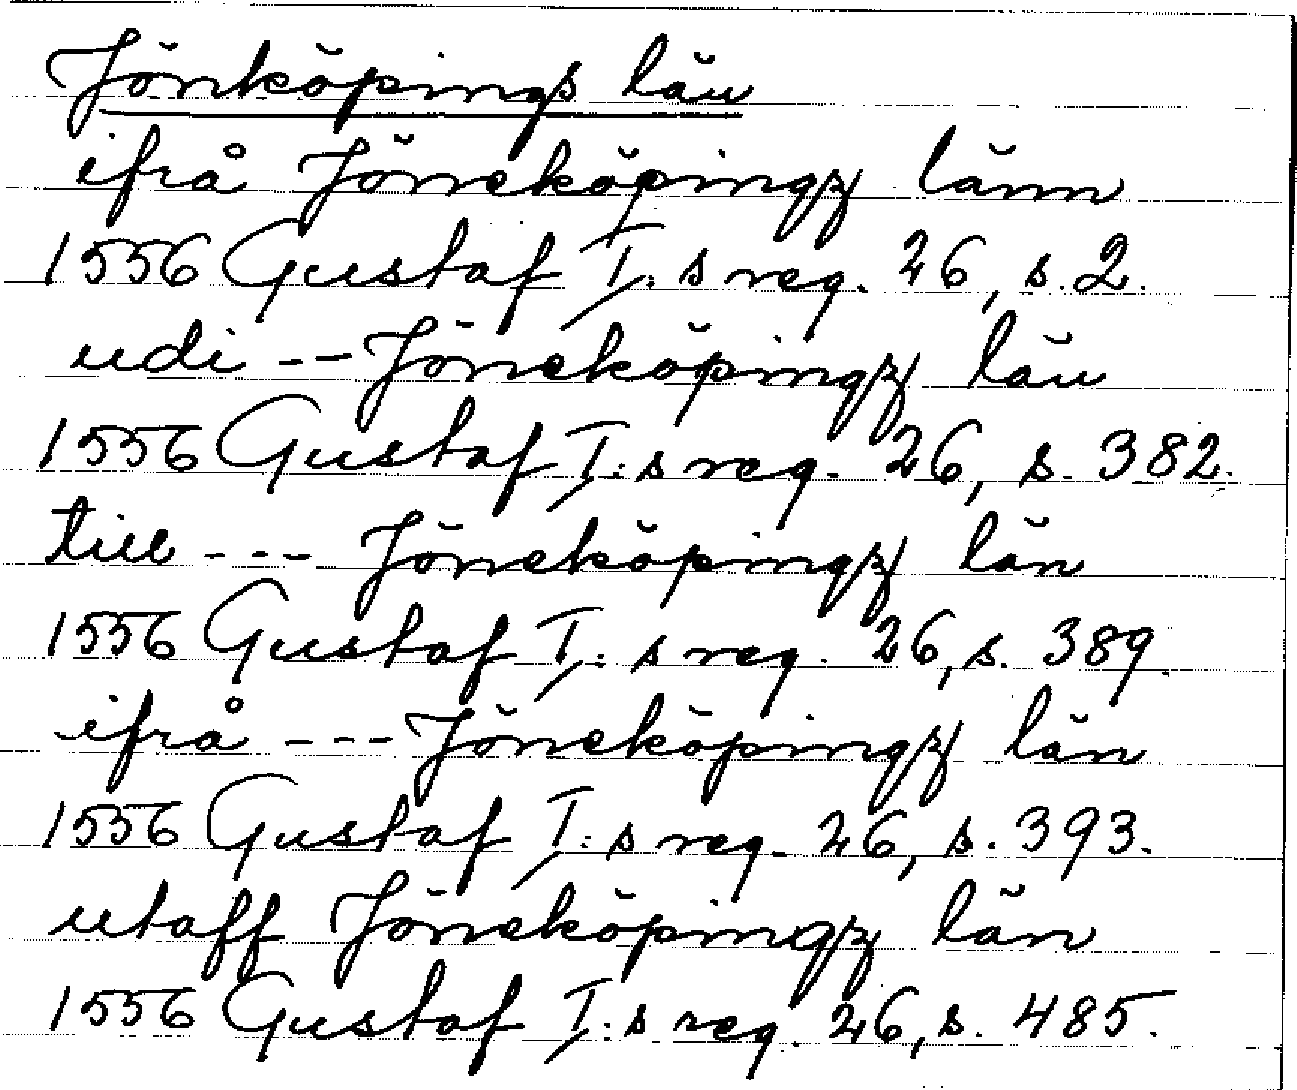 Jönköpings län
ifrå Jöneköpingz länn
1556 Gustaf I:s reg. 26, s. 2.
udi -- Jöneköpingz län
1556 Gustaf I:s reg. 26, s. 382.
till --- Jöneköpingz län
1556 Gustaf I:s reg. 26, s. 389.
ifrå --- Jöneköpingz län
1556 Gustaf I:s reg. 26, s. 393.
utaff Jöneköpingz län
1556 Gustaf I:s reg. 26, s. 485.